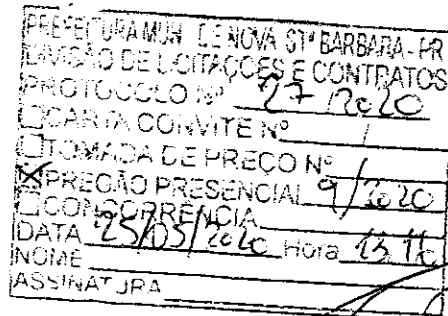 PREFEITURA MUN. DE NOVA STª BARBARA - PR
DIVISÃO DE LICITAÇÕES E CONTRATOS
PROTOCOLO Nº 27/2020
CARTA CONVITE Nº /
TOMADA DE PREÇO Nº
X PREGÃO PRESENCIAL 9/2020
CONCORRÊNCIA
DATA 25/05/2020 Hora
NOME
ASSINATURA